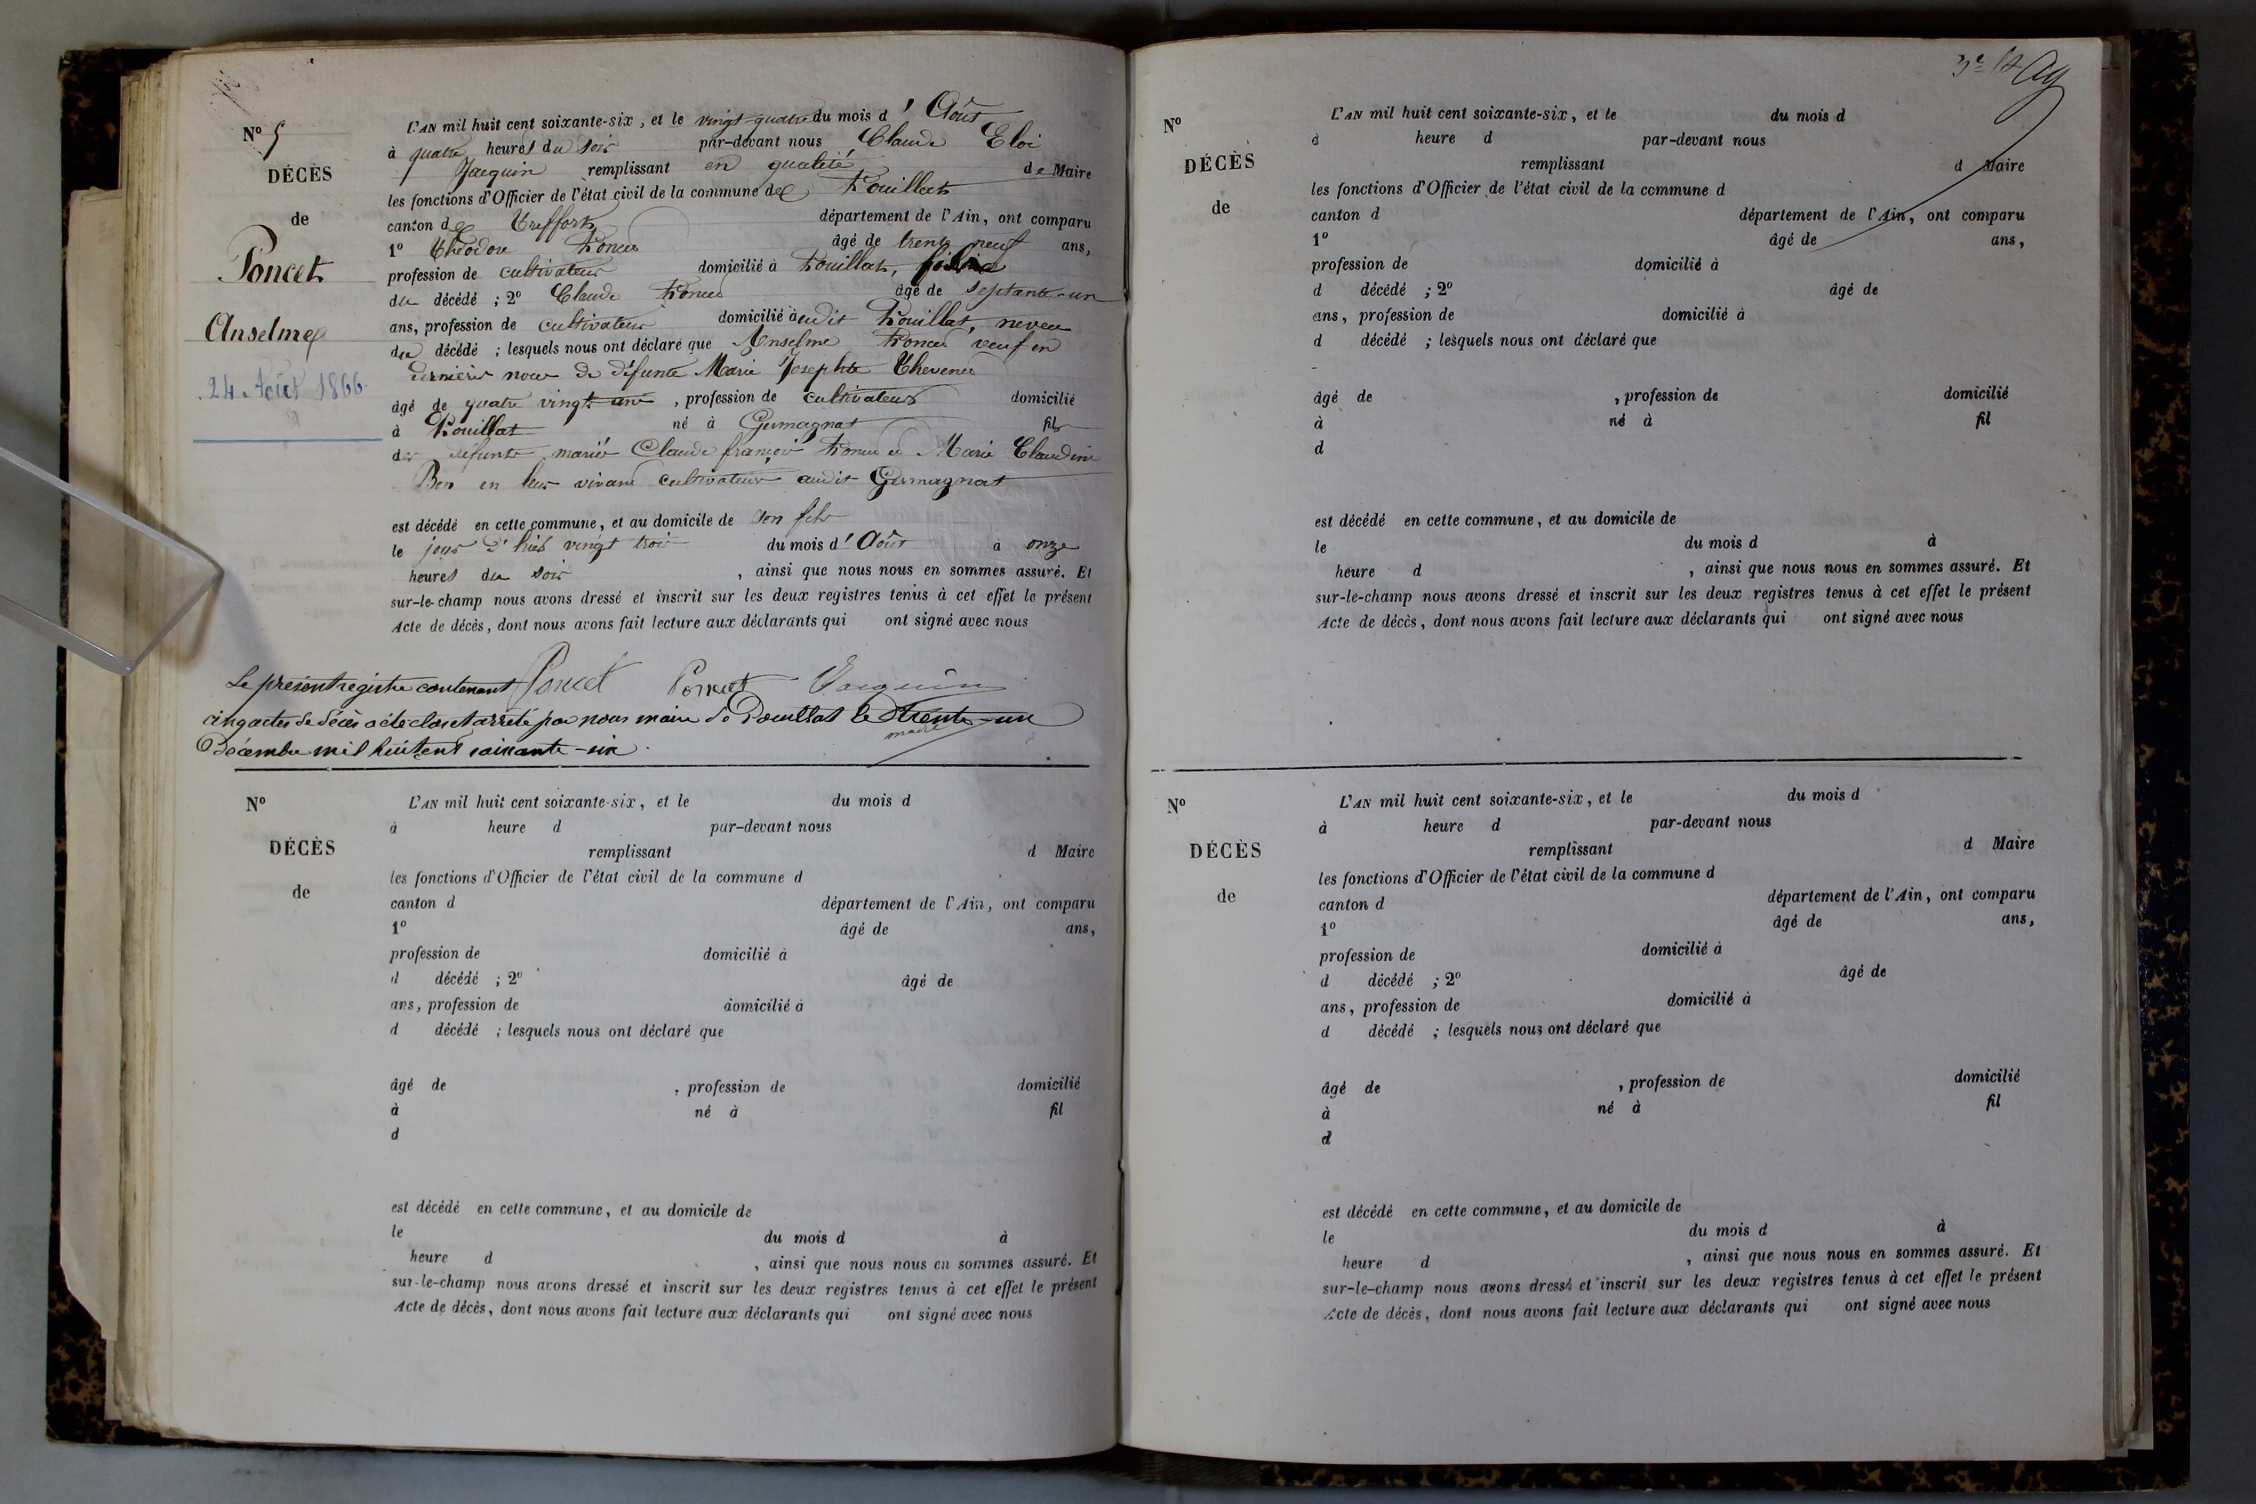 Nº 5
DÉCÈS
de
Poncet
Anselme
24 Août 1866
L'AN mil huit cent soixante-six, et le vingt-quatre du mois d'Août
à quatre heures du soir par-devant nous Claude Eloi
Jacquin remplissant en qualité de Maire
les fonctions d'Officier de l'état civil de la commune de Pouillat
canton de Treffort département de l'Ain, ont comparu
1º Théodore Poncet âgé de trente neuf ans,
profession de cultivateur domicilié à Pouillat,
du décédé ; 2º Claude Poncet âgé de septante-un
ans, profession de cultivateur domicilié audit Pouillat, neveu
du décédé ; lesquels nous ont déclaré que Anselme Poncet veuf en
dernière noce de défunte Marie Josephte Thevenet
âgé de quatre vingt un , profession de cultivateur domicilié
à Pouillat né à Germagnat fils
de défunts mariés Claude françois Poncet et Marie Claudine
Bon en leur vivant cultivateurs audit Germagnat
est décédé en cette commune, et au domicile de son fils
le jour d'hier vingt trois du mois d'Août à onze
heures du soir , ainsi que nous nous en sommes assuré. Et
sur-le-champ nous avons dressé et inscrit sur les deux registres tenus à cet effet le présent
Acte de décès, dont nous avons fait lecture aux déclarants qui ont signé avec nous
Poncet Poncet Jacquin
maire
Le présent registre contenant
cinq actes de décès a été clos et arrêté par nous maire de Pouillat le trente-un
Décembre mil huit cent soixante-six.
Nº
DÉCÈS
de
L'AN mil huit cent soixante-six, et le du mois d
à heure d par-devant nous
remplissant d Maire
les fonctions d'Officier de l'état civil de la commune d
canton d département de l'Ain, ont comparu
1º âgé de ans,
profession de domicilié à
d décédé ; 2º âgé de
ans, profession de domicilié à
d décédé ; lesquels nous ont déclaré que
âgé de , profession de domicilié
à né à fil
d
est décédé en cette commune, et au domicile de
le du mois d à
heure d , ainsi que nous nous en sommes assuré. Et
sur-le-champ nous avons dressé et inscrit sur les deux registres tenus à cet effet le présent
Acte de décès, dont nous avons fait lecture aux déclarants qui ont signé avec nous
Nº
DÉCÈS
de
L'AN mil huit cent soixante-six, et le du mois d
à heure d par-devant nous
remplissant d Maire
les fonctions d'Officier de l'état civil de la commune d
canton d département de l'Ain, ont comparu
1º âgé de ans,
profession de domicilié à
d décédé ; 2º âgé de
ans, profession de domicilié à
d décédé ; lesquels nous ont déclaré que
âgé de , profession de domicilié
à né à fil
d
est décédé en cette commune, et au domicile de
le du mois d à
heure d , ainsi que nous nous en sommes assuré. Et
sur-le-champ nous avons dressé et inscrit sur les deux registres tenus à cet effet le présent
Acte de décès, dont nous avons fait lecture aux déclarants qui ont signé avec nous
Nº
DÉCÈS
de
L'AN mil huit cent soixante-six, et le du mois d
à heure d par-devant nous
remplissant d Maire
les fonctions d'Officier de l'état civil de la commune d
canton d département de l'Ain, ont comparu
1º âgé de ans,
profession de domicilié à
d décédé ; 2º âgé de
ans, profession de domicilié à
d décédé ; lesquels nous ont déclaré que
âgé de , profession de domicilié
à né à fil
d
est décédé en cette commune, et au domicile de
le du mois d à
heure d , ainsi que nous nous en sommes assuré. Et
sur-le-champ nous avons dressé et inscrit sur les deux registres tenus à cet effet le présent
Acte de décès, dont nous avons fait lecture aux déclarants qui ont signé avec nous